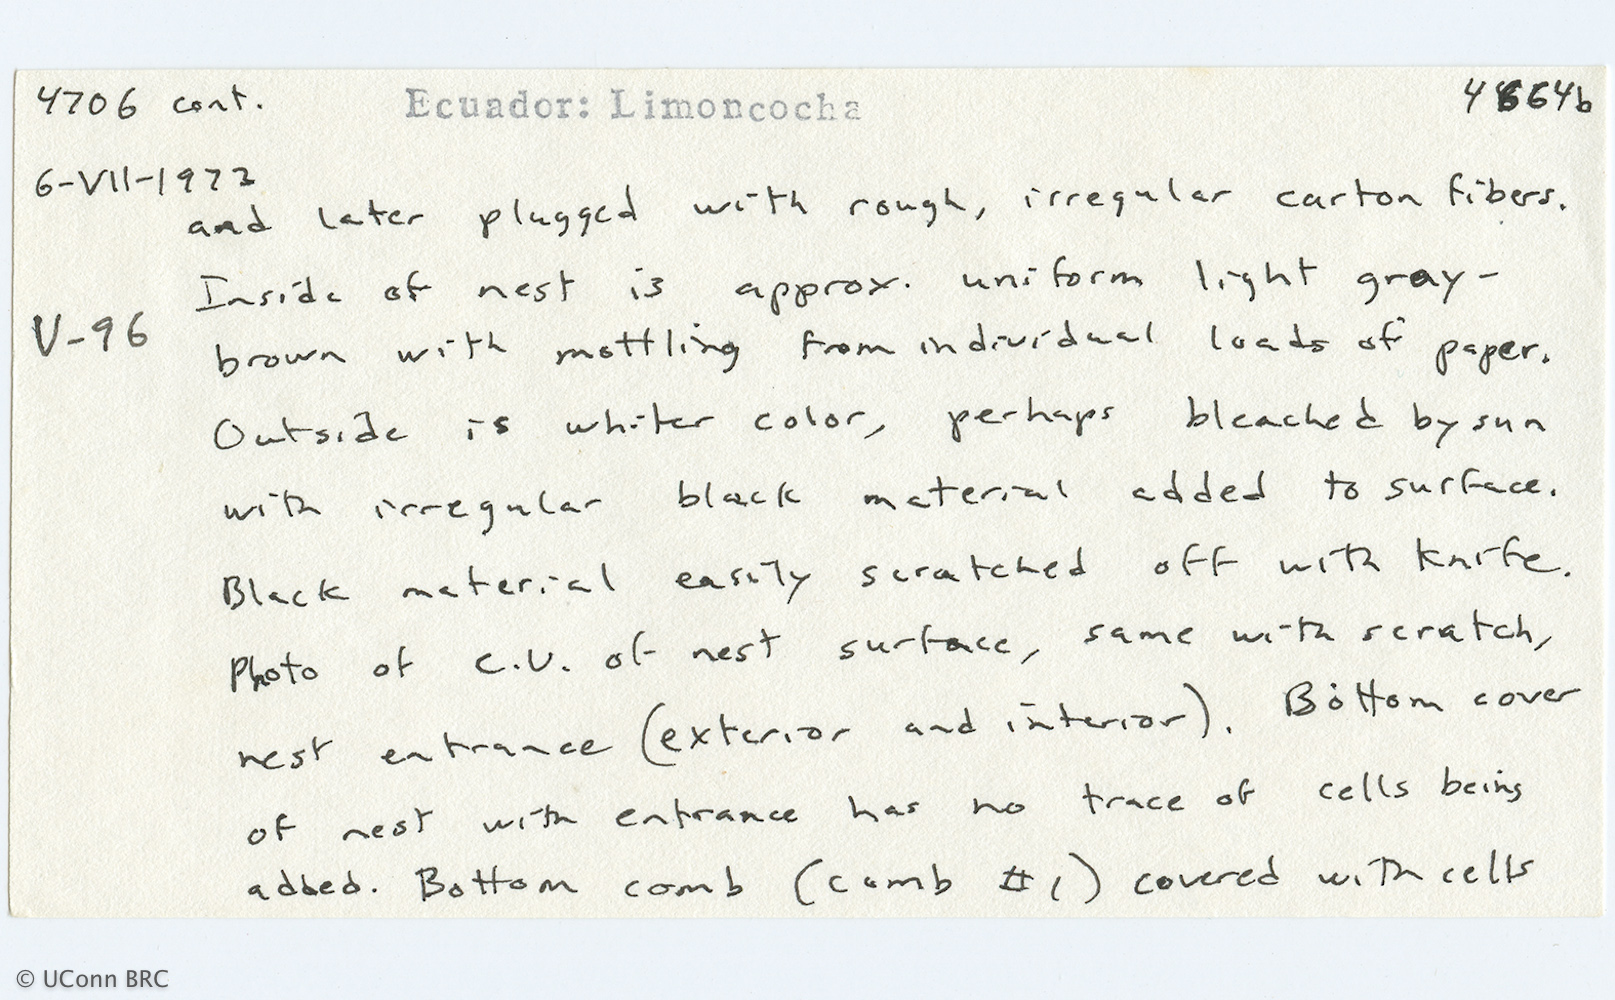 4706 cont. Ecuador: Limoncocha 4664b
6-VII-1972
and later plugged with rough, irregular carton fibers.
Inside of nest is approx. uniform light gray-
V-96
brown with mottling from individual loads of paper.
Outside is whiter color, perhaps bleached by sun
with irregular black material added to surface.
Black material easily scratched off with knife.
Photo of C.U. of nest surface, same with scratch,
nest entrance (exterior and interior). Bottom cover
of nest with entrance has no trace of cells being
added. Bottom comb (comb #1) covered with cells
© UConn BRC